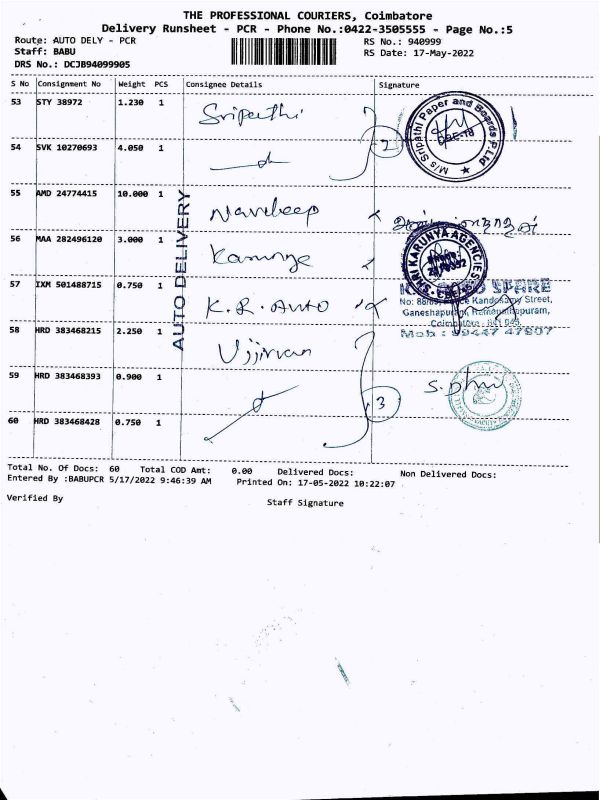 THE PROFESSIONAL COURIERS, Coimbatore
Delivery Runsheet - PCR - Phone No.:0422-3505555 - Page No.:5
Route: AUTO DELY - PCR RS No.: 940999
Staff: BABU RS Date: 17-May-2022
DRS No.: DCJB94099905
S No Consignment No Weight PCS Consignee Details Signature
53 STY 38972 1.230 1 Sripathi
M/s Sripathi Paper and Boards P.Ltd
CBE-18
2
54 SVK 10270693 4.050 1
AUTO DELIVERY
55 AMD 24774415 10.000 1 Navdeep
56 MAA 282496120 3.000 1 Karunya
SHRI KARUNYA AGENCIES
57 IXM 501488715 0.750 1 K.R. Auto
SPARE
Street,
Ganeshapuram, Ramanathapuram,
Coimbatore
Mob : 99447 47807
58 HRD 383468215 2.250 1 Ujjivan
59 HRD 383468393 0.900 1
3
60 HRD 383468428 0.750 1
Total No. Of Docs: 60 Total COD Amt: 0.00 Delivered Docs: Non Delivered Docs:
Entered By :BABUPCR 5/17/2022 9:46:39 AM Printed On: 17-05-2022 10:22:07
Verified By Staff Signature